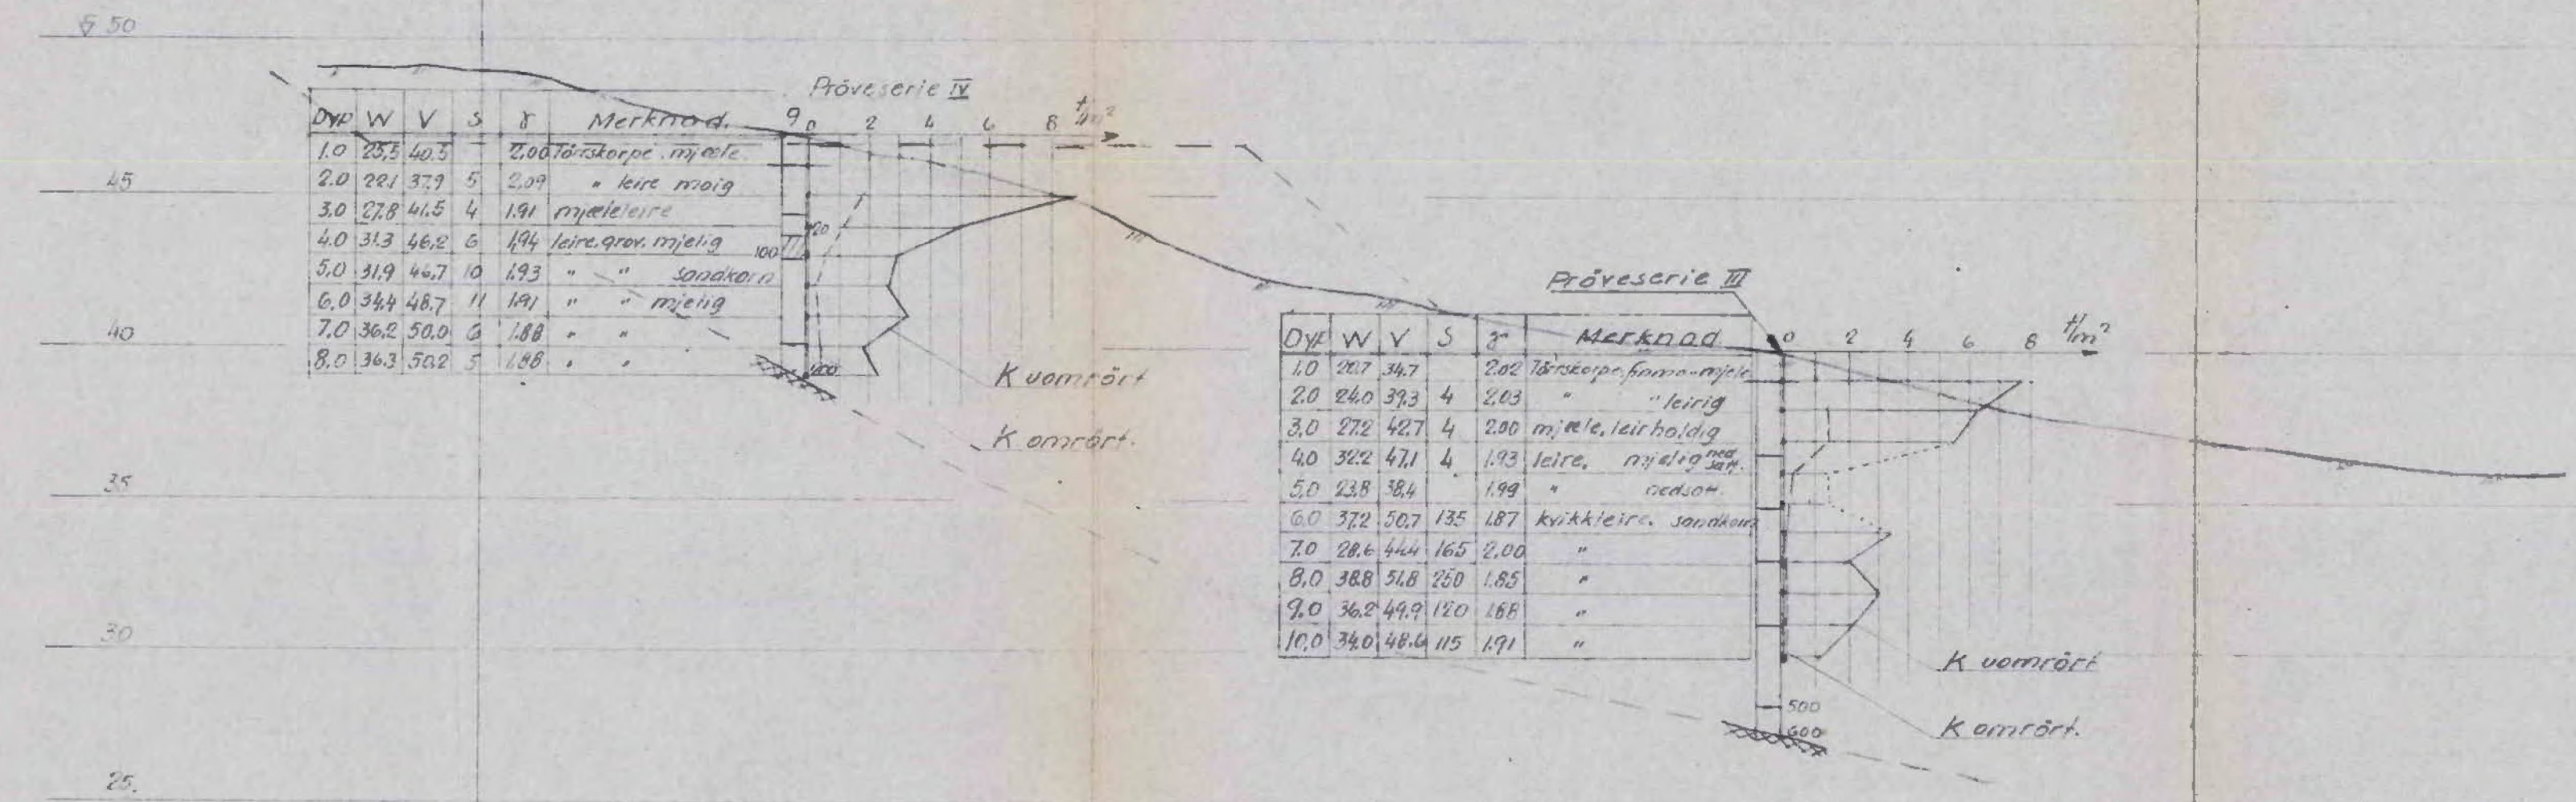 50
45
40
35
30
25.
Pröveserie IV
Dyp W V S γ Merknad. 0 2 4 6 8
1.0 25,5 40.5 2,00 Törrskorpe. mjæle
2.0 22,1 37.9 5 2,09 " leire moig
3,0 27.8 41.5 4 1.91 mjæleleire
4.0 31.3 46,2 6 1,94 leire. grov. mjelig
5,0 31,9 46,7 10 1.93 " " sandkorn
6,0 34,4 48,7 11 1,91 " " mjelig
7.0 36,2 50,0 6 1.88 " "
8.0 36,3 50,2 5 1,88 " "
20
100
200
K uomrört
K omrört.
Pröveserie III
Dyp W V S γ Merknad 0 2 4 6 8 t/m²
1,0 20,7 34.7 2.02 Törrskorpe. finmo-mjele
2.0 24.0 39.3 4 2,03 " " leirig
3,0 27.2 42.7 4 2.00 mjæle, leirholdig
4.0 32.2 47.1 4 1.93 leire. mjelig
5,0 23.8 38,4 1.99 " nedsatt.
6.0 37.2 50.7 135 1.87 kvikkleire. sandkorn
7.0 28.6 44.4 165 2.00 "
8,0 38.8 51.8 250 1.85 "
9.0 36.2 49.9 120 1.88 "
10,0 34.0 48.6 115 1.91 "
500
600
K uomrört
K omrört.